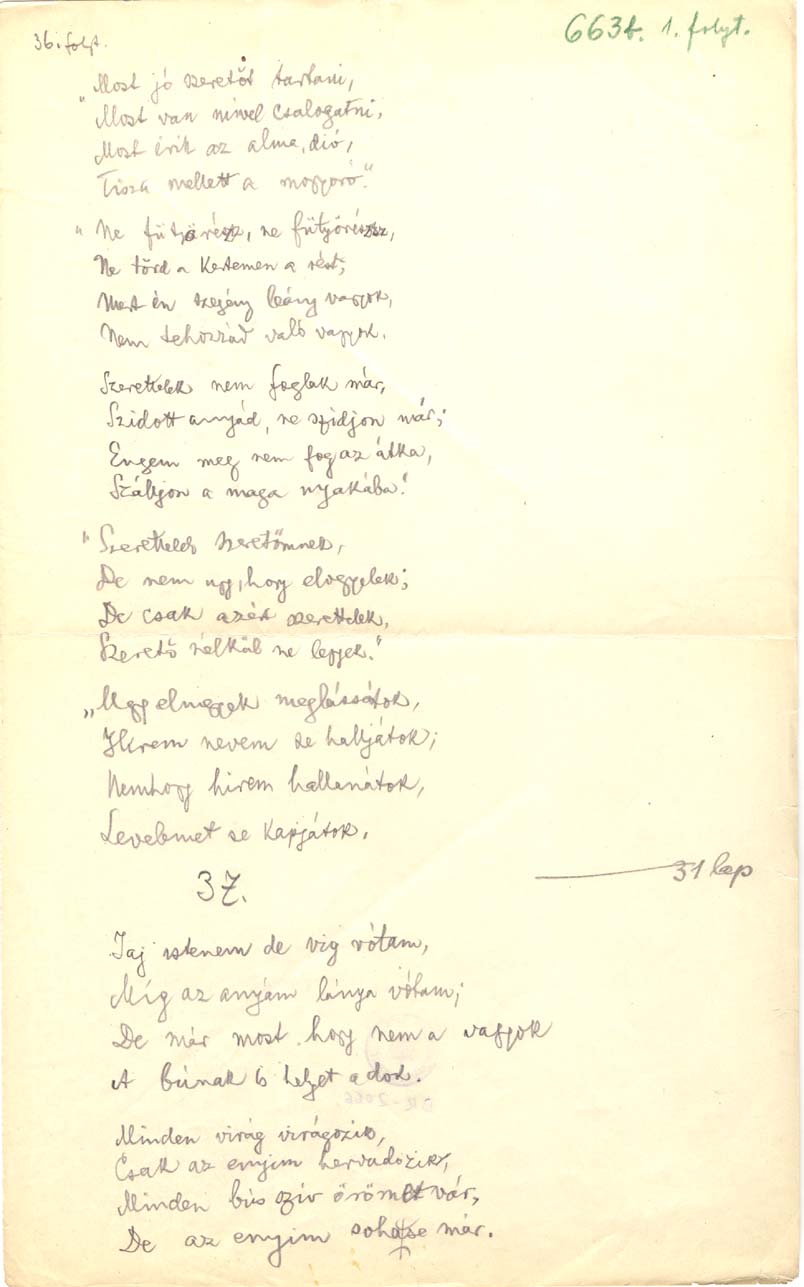 36. folyt.
663b. 1. folyt.
"Most jó szeretőt tartani,
Most van mivel csalogatni,
Most érik az alma, dió,
Tisza mellett a mogyoró."
"Ne fütyörészz, ne fütyörészz,
Ne törd a kertemen a rést;
Mert én szegény leány vagyok,
Nem tehozzád való vagyok.
Szerettelek nem foglak már,
Szidott anyád, ne szidjon már;
Engem meg nem fog az átka,
Szálljon a maga nyakába."
"Szerettelek szeretőmnek,
De nem ugy, hogy elvegyelek;
De csak azért szerettelek,
Szerető nélkül ne legyek."
„Ugy elmegyek meglássátok,
Hirem nevem se halljátok;
Nemhogy hirem hallanátok,
Levelemet se kapjátok.
37.
31 lap
Jaj istenem de vig vótam,
Míg az anyám lánya vótam;
De már most hogy nem a vagyok
A búnak is helyet adok.
DR-2066
Minden virág virágozik,
Csak az enyim hervadozik,
Minden bús szív örömet vár,
De az enyim sohse már.